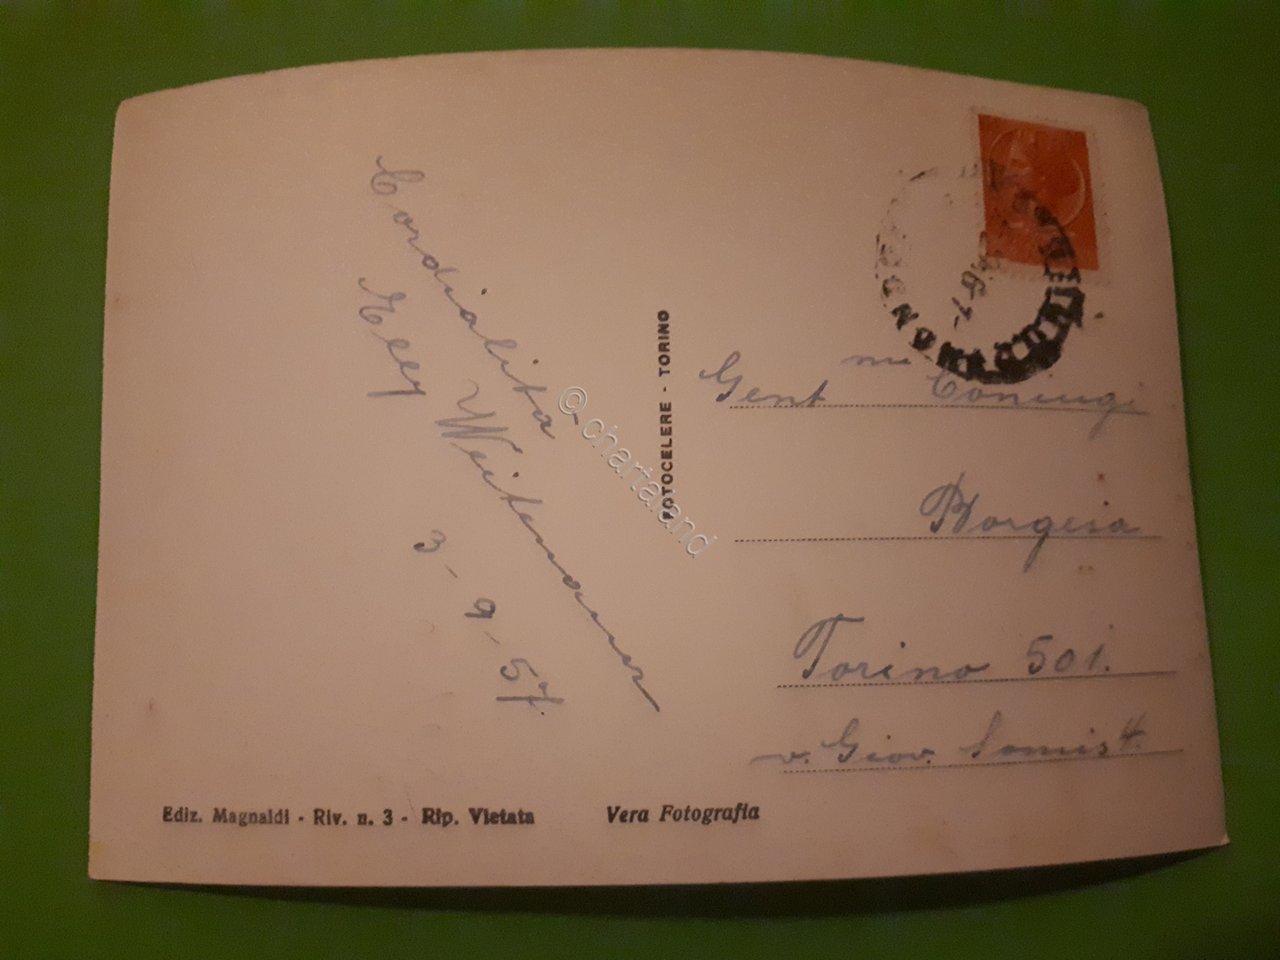 Cordialità
Elly Weitmann
3-9-57
FOTOCELERE - TORINO
Gent me Coniugi
Borgesa
Torino 501.
v. Giov. Somis 4.
Ediz. Magnaldi - Riv. n. 3 - Rip. Vietata
Vera Fotografia
© chartaland